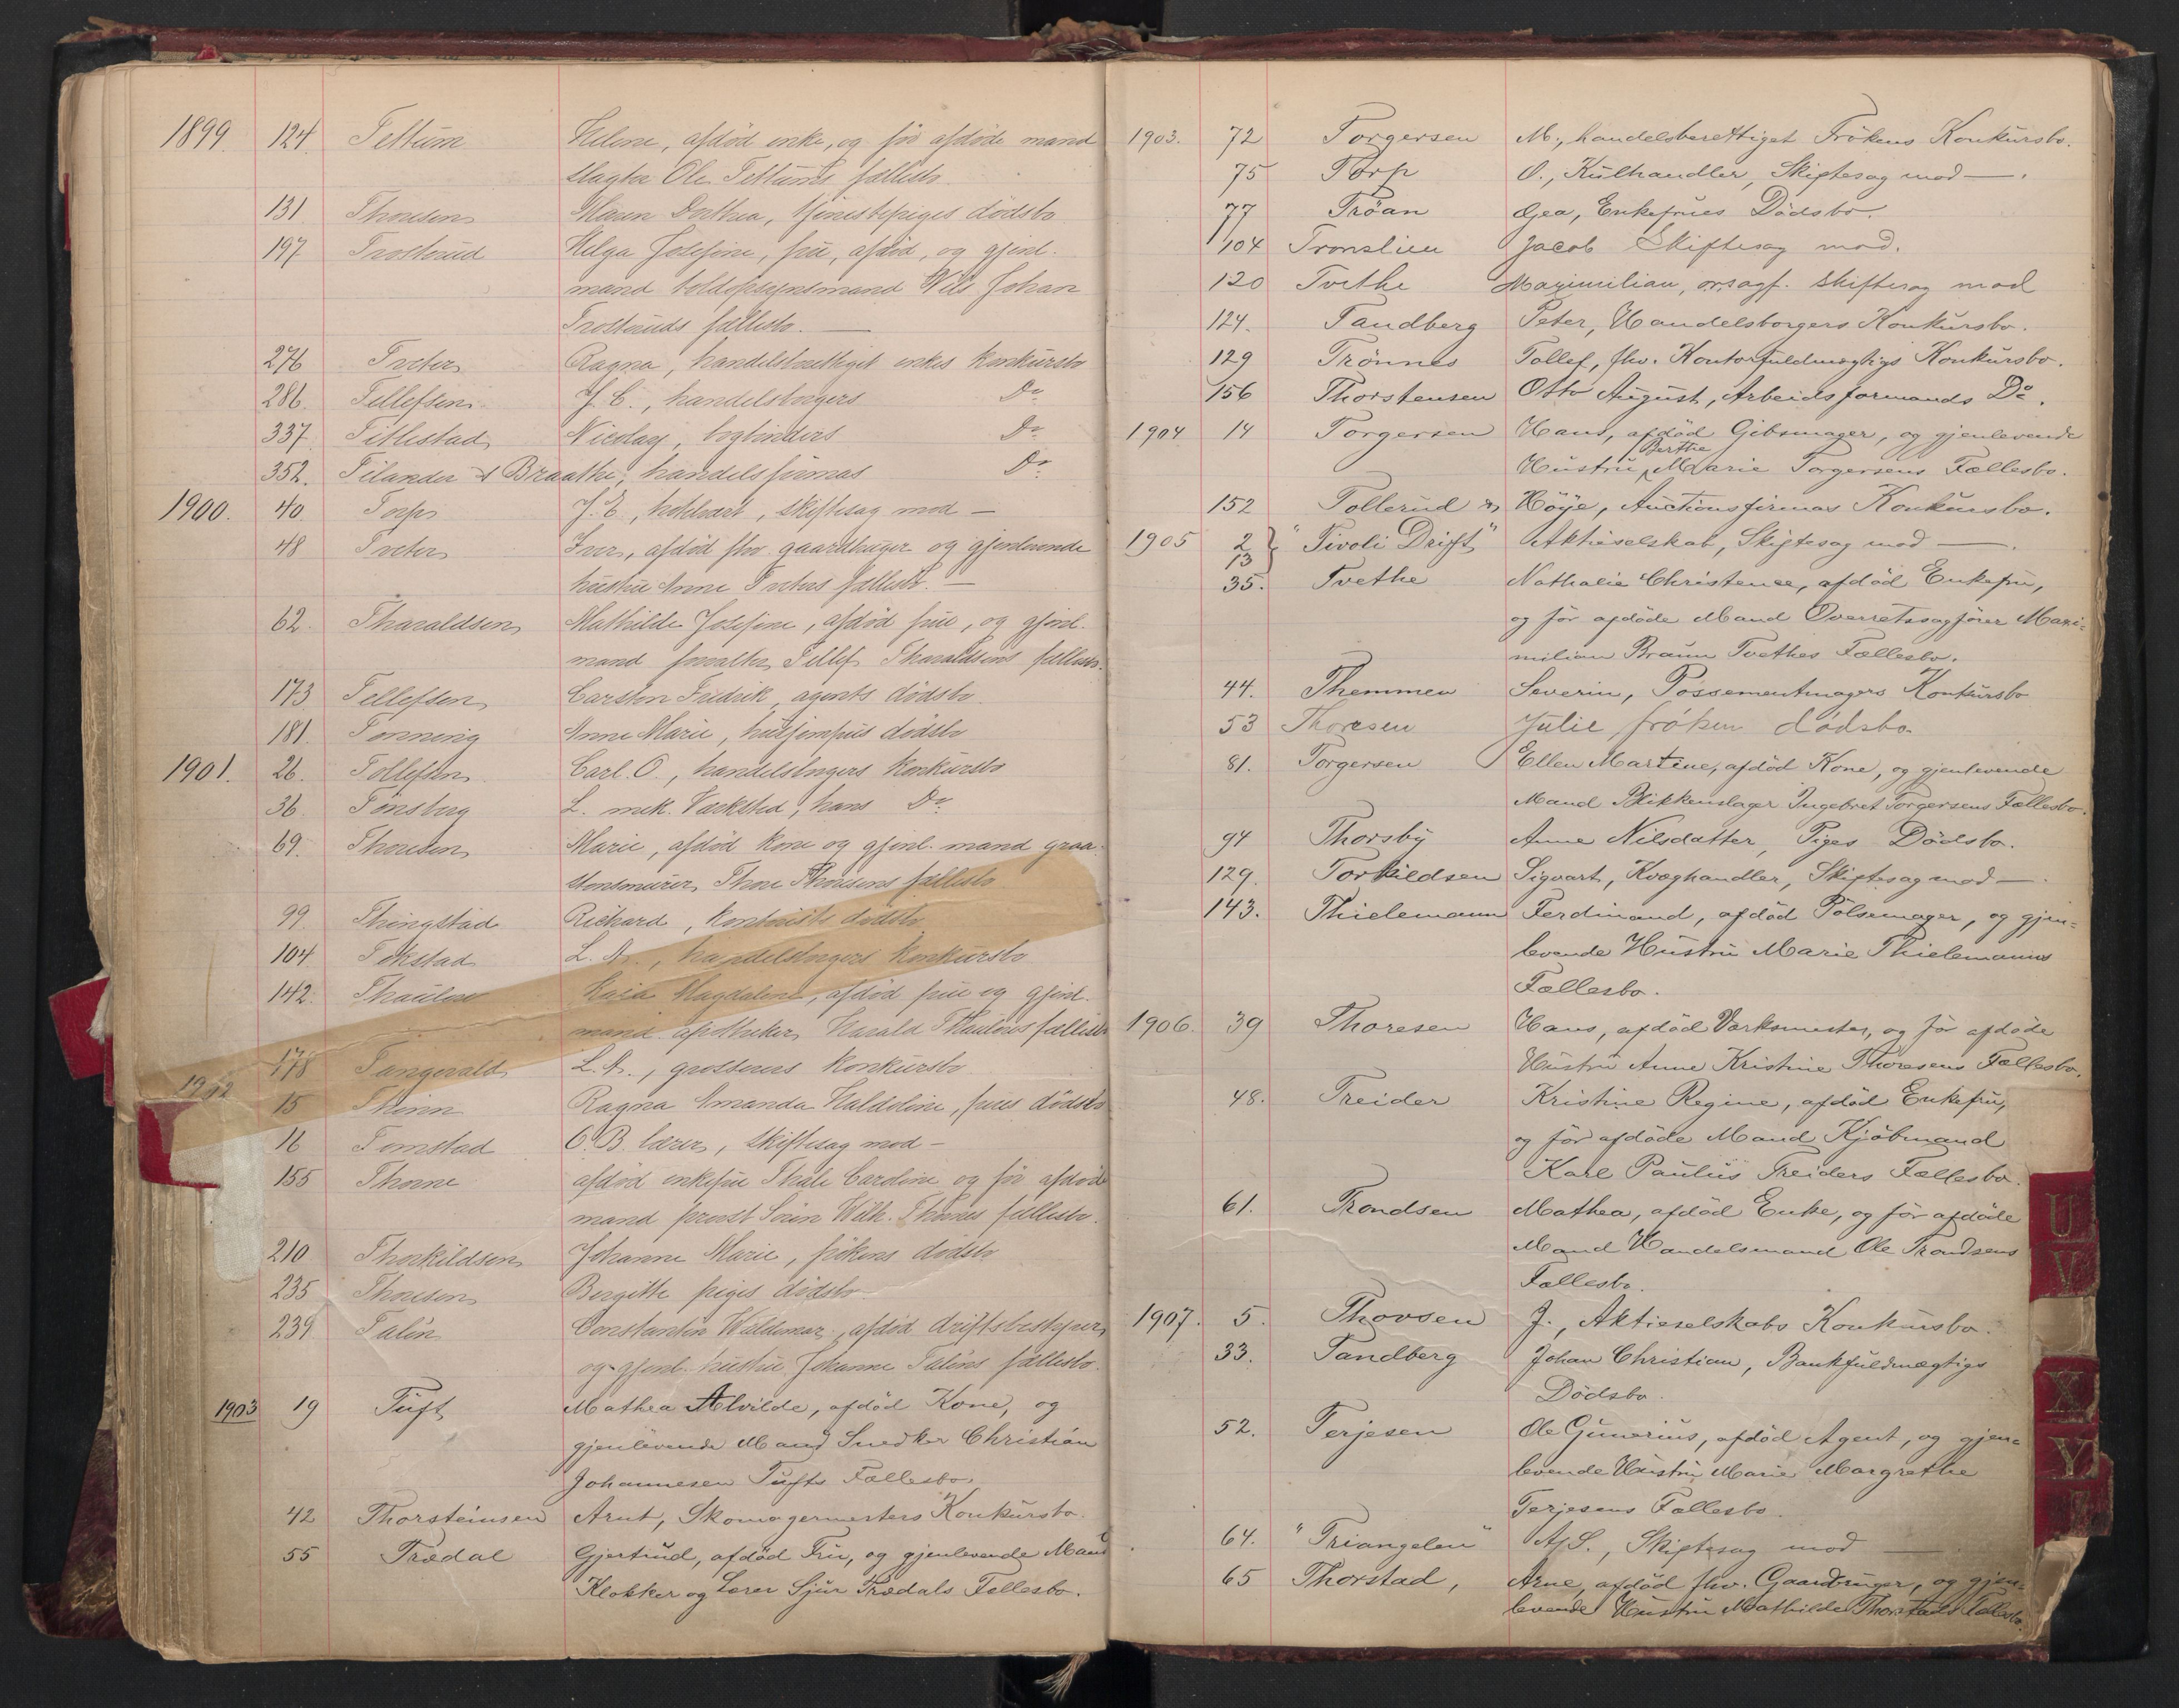 1899. 124. Tettum Helene, afdöd enke, og för afdöde mand
slagter Ole Tettums fællesbo
131 Thoresen Maren Dorthea, tjenestepiges dödsbo
197 Trosterud Helga Josefine, frue, afdöd, og gjenl.
mand toldopsynsmand Nils Johan
Trosteruds fællesbo. —
276 Tveter Ragna, handelsberettiget enkes konkursbo
286. Tellefsen J. C., handelsborgers Do
337 Titlestad Nicolay, bogbinders Do
352. Tilander & Braathe, handelsfirmas Do
1900. 40. Torp J. E., hotelvært, skiftesag mod —
48 Tveter Iver, afdöd fhv. gaardbruger og gjenlevende
hustru Anne Tveters fællesbo. —
62. Tharaldsen Mathilde Josefine, afdöd frue, og gjenl.
mand forvalter Tellef Tharaldsens fællesbo.
173 Tellefsen Carsten Fredrik, agents dödsbo.
181. Tonning Anne Marie, husjomfrus dödsbo
1901. 26. Tollefsen Carl O., handelsborgers konkursbo
36. Tönsberg L. mek. Værksted, hans Do
69. Thoresen Marie, afdöd kone og gjenl. mand graa-
stensmurer Thore Thoresens fællesbo
99. Thingstad Richard, kontorists dödsbo
104 Tokstad L. A., handelsborgers konkursbo
142. Thaulow Kaia Magdalene, afdöd frue og gjenl.
mand apotheker Harald Thaulows fællesbo
178 Tangevald L. A., grosserers konkursbo
1902 15 Thinn Ragna Amanda Haldoline, frues dödsbo
16 Tomstad O. B. lærer, skiftesag mod —
155 Thorne afdöd enkefrue Thale Caroline og för afdöde
mand provst Sören Wilh. Thornes fællesbo.
210 Thorkildsen Johanne Marie, frökens dödsbo
235 Thoresen Bergitte piges dödsbo
239 Talén Constantin Waldemar, afdöd driftsbestyrer
og gjenl. hustru Johanne Taléns fællesbo.
1903 19 Tuft Mathea Alvilde, afdöd Kone, og
gjenlevende Mand Snedker Christian
Johannesen Tufts Fællesbo.
42 Thorsteinsen Arnt, Skomagermesters Konkursbo.
55 Trædal Gjertrud, afdöd Fru, og gjenlevende Mand
Klokker og Lærer Sjur Trædals Fællesbo.
1903. 72 Torgersen M., handelsberettiget Frökens Konkursbo.
75 Torp O., Kulhandler, Skiftesag mod — .
77 Tröan Gea, Enkefrues Dödsbo.
104 Tronslien Jacob Skiftesag mod.
120 Tvethe Maximilian, orsagf. skiftesag mod
124. Tandberg Peter, Handelsborgers Konkursbo.
129 Trönnes Tollef, fhv. Kontorfuldmægtigs Konkursbo.
156 Thorstensen Otto August, Arbeidsformands Do.
1904 14 Torgersen Hans, afdöd Gibsmager, og gjenlevende
Berthe
Hustru Marie Torgersens Fællesbo.
152 Tollerud & Höye, Auctionsfirmas Konkursbo.
1905 2 } "Tivoli Drift" Aktieselskab, Skiftesag mod — .
13
35. Tvethe Nathalie Christence, afdöd Enkefru,
og för afdöde Mand Overretssagförer Maxi-
milian Braun Tvethes Fællesbo.
44. Themmen Severin, Possementmagers Konkursbo
53 Thoresen Julie fröken dödsbo
81. Torgersen Ellen Martine, afdöd Kone, og gjenlevende
Mand Blikkenslager Ingebret Torgersens Fællesbo.
94 Thorsby Anne Nilsdatter, Piges Dödsbo.
129. Torkildsen Sigvart, Kvæghandler, Skiftesag mod —
143. Thielemann Ferdinand, afdöd Pölsemager, og gjen-
levende Hustru Marie Thielemanns
Fællesbo.
1906. 39 Thoresen Hans, afdöd Værksmester, og för afdöde
Hustru Anne Kristine Thoresens Fællesbo.
48. Treider Kristine Regine, afdöd Enkefru,
og för afdöde Mand Kjöbmand
Karl Paulus Treiders Fællesbo.
61. Trondsen Mathea, afdöd Enke, og för afdöde
Mand Handelsmand Ole Trondsens
Fællesbo.
1907. 5. Thovsen J., Aktieselskabs Konkursbo.
33. Tandberg Johan Christian, Bankfuldmægtigs
Dödsbo.
52. Terjesen Ole Gunerius, afdöd Agent, og gjen-
levende Hustru Marie Margrethe
Terjesens Fællesbo.
64. "Triangelen" A/S., Skiftesag mod —
65 Thorstad, Arne, afdöd fhv. Gaardbruger, og gjen-
levende Hustru Mathilde Thorstads Fællesbo.
U
V
X
Y